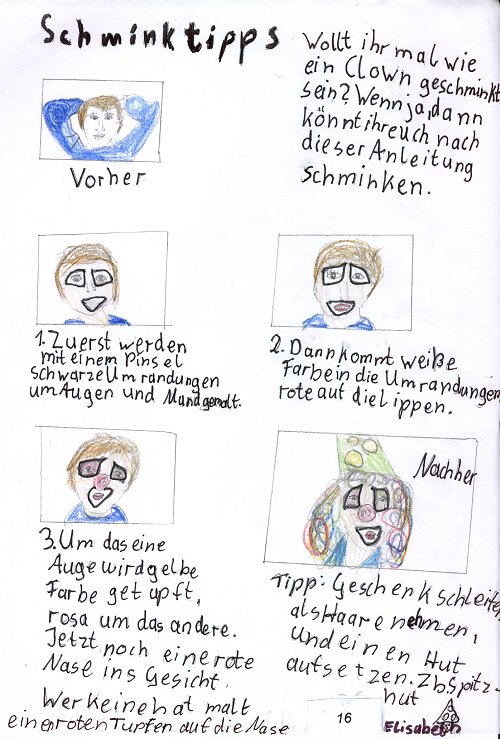 Schminktipps
Wollt ihr mal wie
ein Clown geschminkt
sein? Wenn ja, dann
könnt ihr euch nach
dieser Anleitung
schminken.
Vorher
1. Zuerst werden
mit einem Pinsel
schwarze Umrandungen
um Augen und Mund gemalt.
2. Dann kommt weiße
Farbe in die Umrandungen
rote auf die Lippen.
3. Um das eine
Auge wird gelbe
Farbe getupft,
rosa um das andere.
Jetzt noch eine rote
Nase ins Gesicht.
Wer keine hat malt
einen roten Tupfen auf die Nase
Nachher
Tipp: Geschenkschleifen
als Haare nehmen,
und einen Hut
aufsetzen. Zb Spitz-
hut
16
Elisabeth